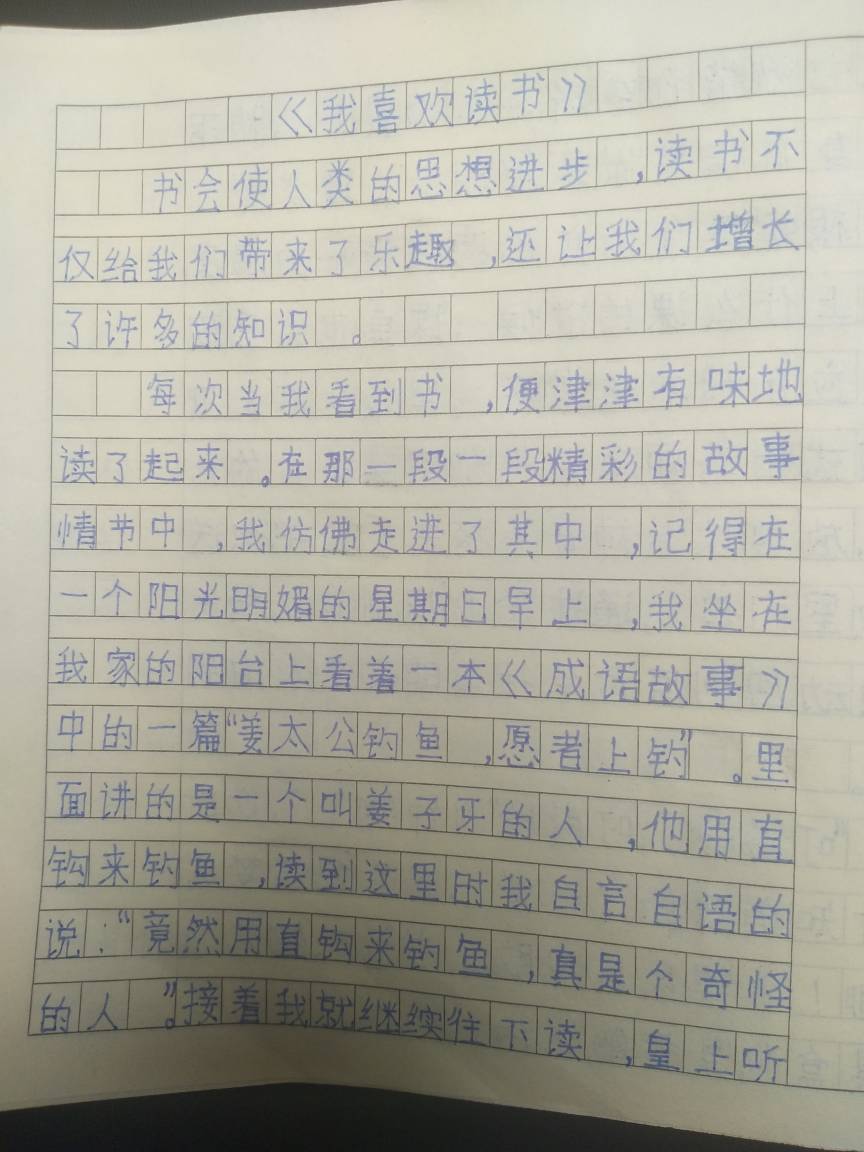 《我喜欢读书》
书会使人类的思想进步，读书不
仅给我们带来了乐趣，还让我们增长
了许多的知识。
每次当我看到书，便津津有味地
读了起来。在那一段一段精彩的故事
情节中，我仿佛走进了其中，记得在
一个阳光明媚的星期日早上，我坐在
我家的阳台上看着一本《成语故事》
中的一篇“姜太公钓鱼，愿者上钓”。里
面讲的是一个叫姜子牙的人，他用直
钩来钓鱼，读到这里时我自言自语的
说：“竟然用直钩来钓鱼，真是个奇怪
的人。”接着我就继续往下读，皇上听